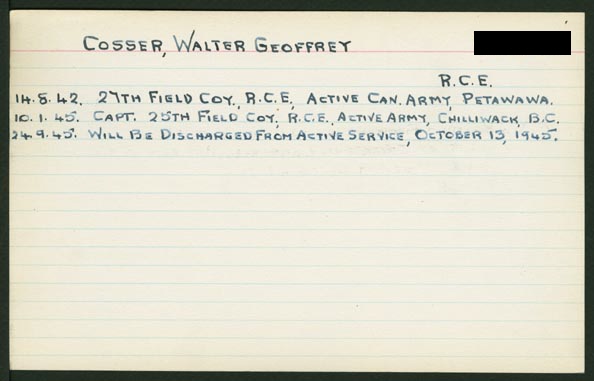 COSSER, WALTER GEOFFREY
R.C.E.
14.8.42. 27TH FIELD COY., R.C.E., ACTIVE CAN. ARMY, PETAWAWA.
10.1.45. CAPT. 25TH FIELD COY. R.C.E., ACTIVE ARMY, CHILLIWACK, B.C.
24.9.45. WILL BE DISCHARGED FROM ACTIVE SERVICE, OCTOBER 13, 1945.